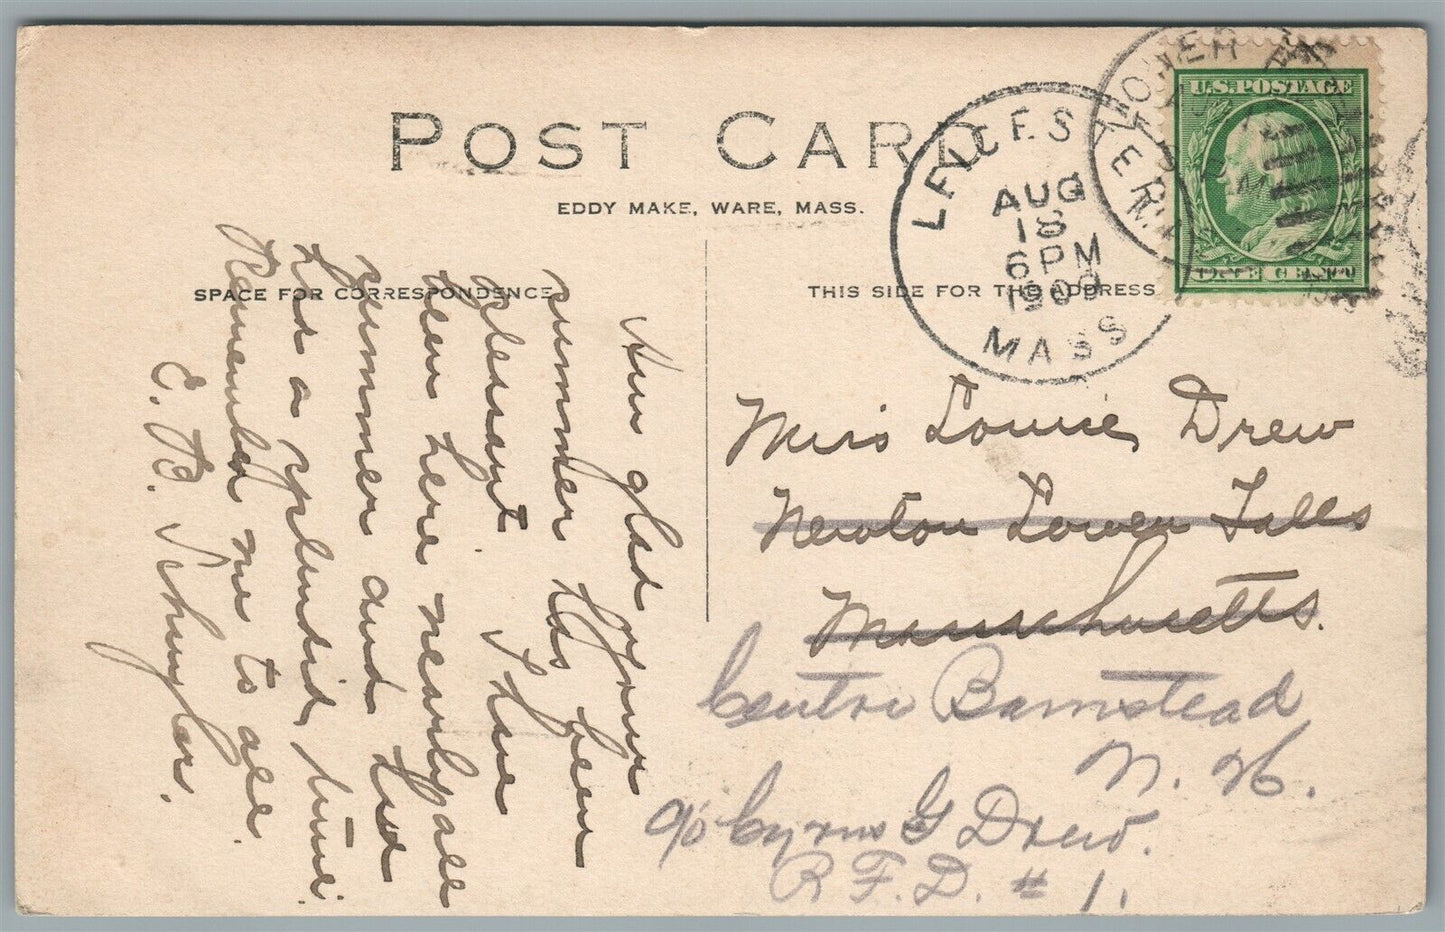 POST CARD
EDDY MAKE, WARE, MASS.
SPACE FOR CORRESPONDENCE
THIS SIDE FOR THE ADDRESS
U.S. POSTAGE
ONE CENT
LEICES
AUG
18
6 PM
1909
MASS
LOWER
Am glad your
summer has been
pleasant. I have
been here nearly all
summer and had
had a splendid time.
Remember me to all.
E. B. Schuyler.
Miss Louise Drew
Newton Lower Falls
Massachusetts.
Centre Barnstead
N. H.
c/o Cyrus G Drew.
R. F. D. # 1.